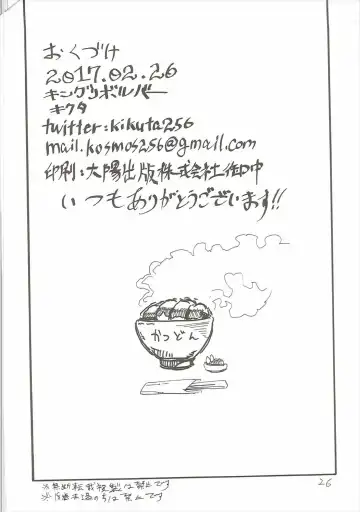 おくづけ
2017.02.26
キングリボルバー
キクタ
twitter:kikuta256
mail.kosmos256@gmail.com
印刷:太陽出版株式会社御中
いつもありがとうございます!!
かつどん
※無断転載複製は禁止です
は禁止です
26